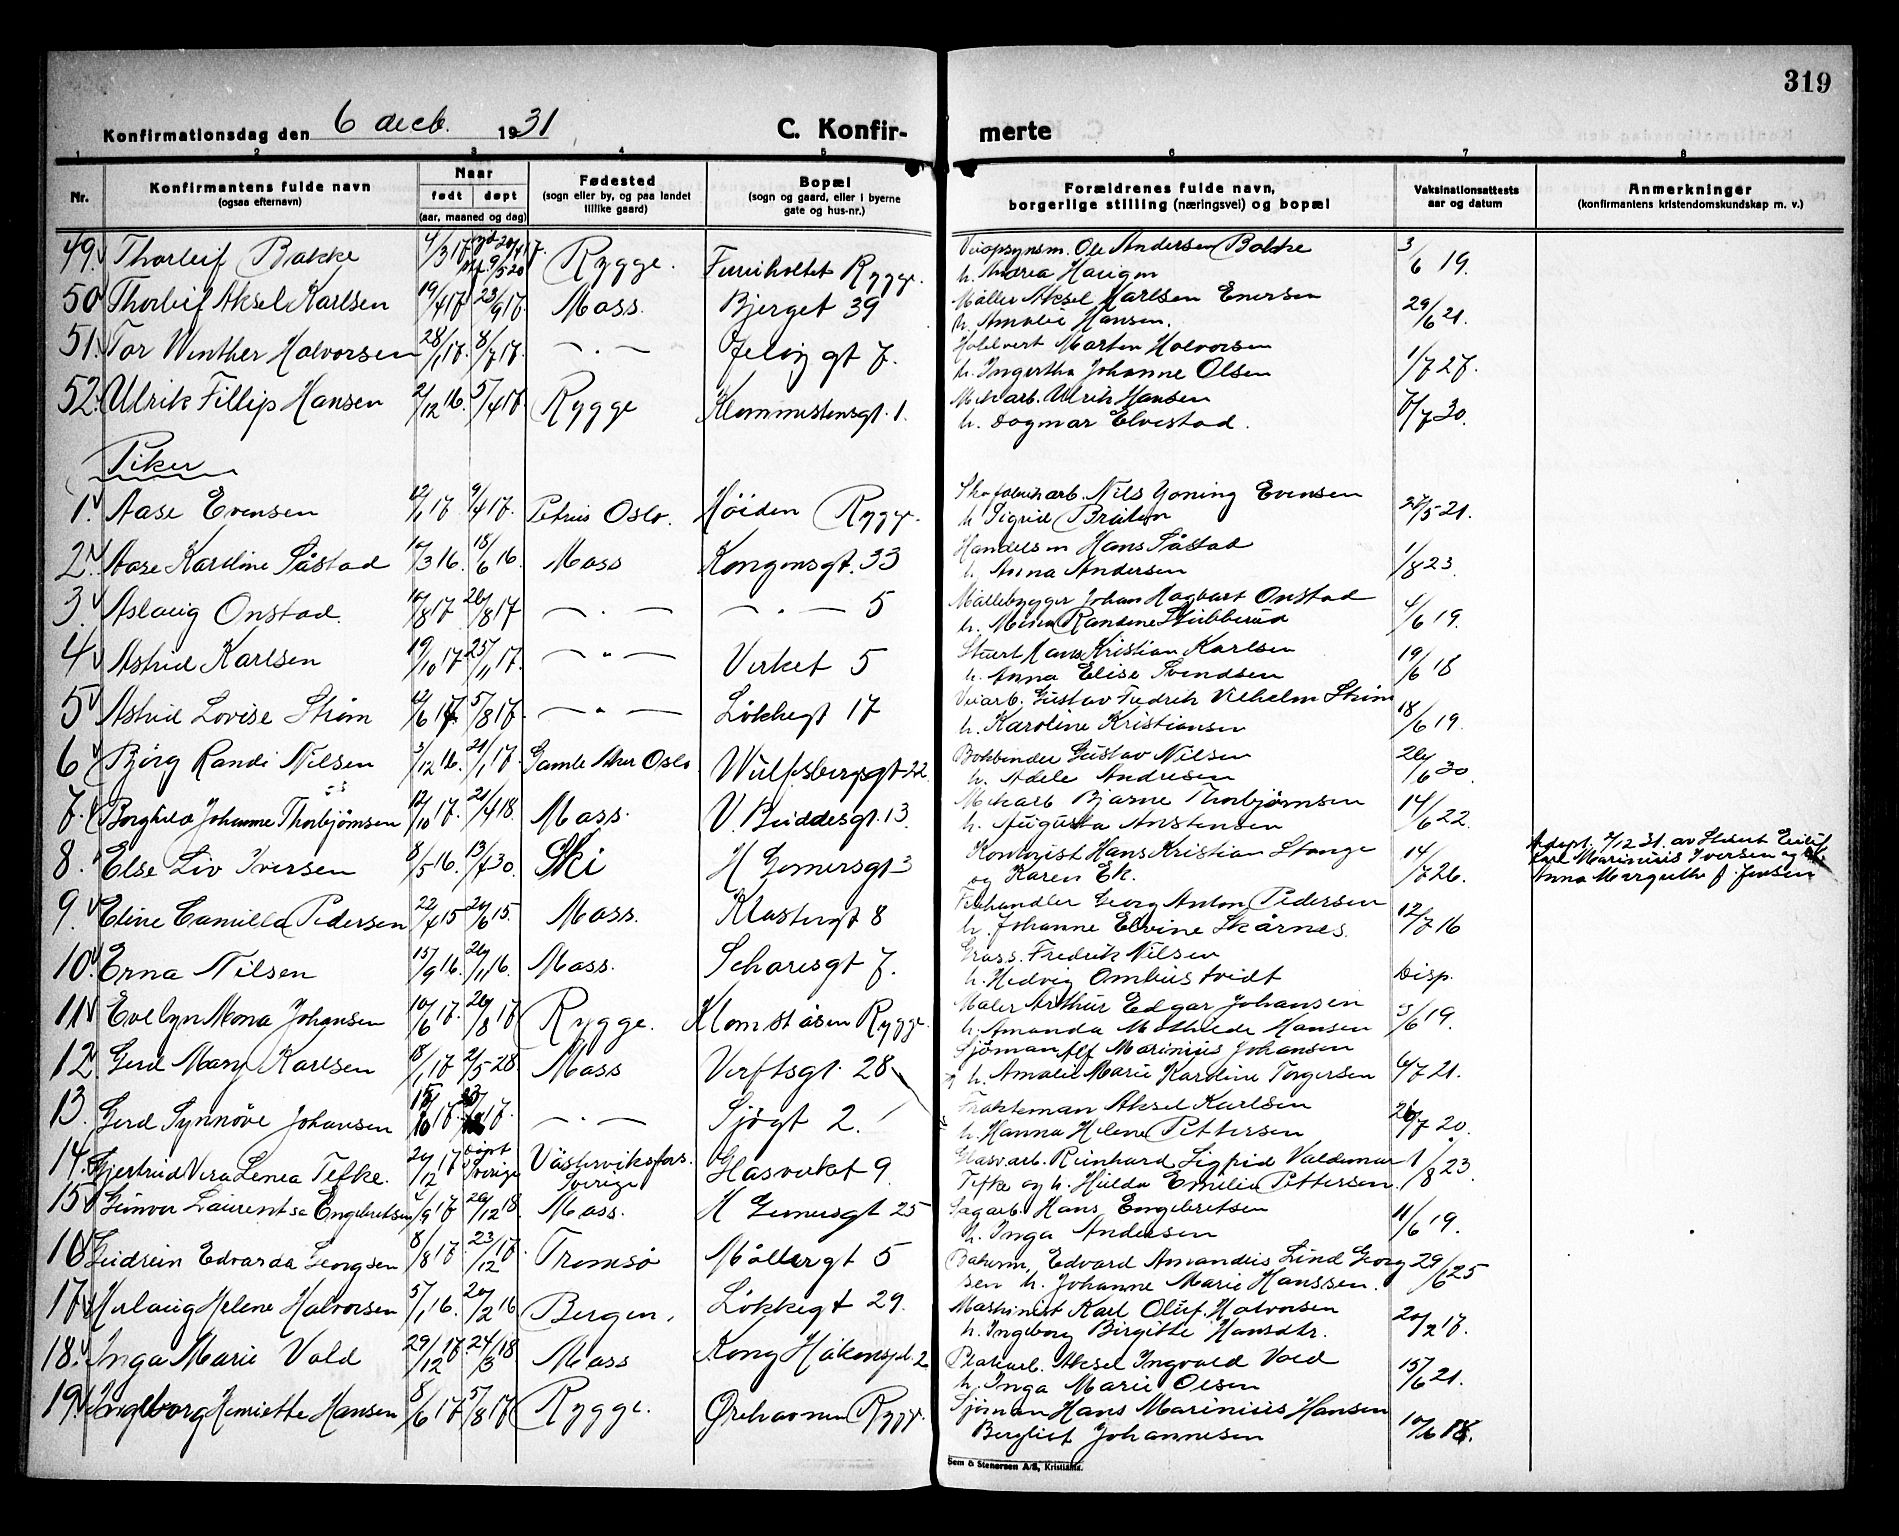 319
Konfirmationsdag den 6 decb. 1931
C. Konfirmerte
1 2 3 4 5 6 7 8
Nr.
Konfirmantens fulde navn
(ogsaa efternavn)
Naar
født døpt
(aar, maaned og dag)
Fødested
(sogn eller by, og paa landet
tillike gaard)
Bopæl
(sogn og gaard, eller i byerne
gate og hus-nr.)
Forældrenes fulde navn,
borgerlige stilling (næringsvei) og bopæl
Vaksinationsattests
aar og datum
Anmerkninger
(konfirmantens kristendomskundskap m. v.)
49. Thorleif Bakke 4/3 17. Rygge. Furuholtet Rygge. Ole Andersen Bakke 3/6 19.
h. Andrea Haugen
50 Thorleif Aksel Karlsen 19/4 17. 23/9 17. Moss. Bjerget 39 Møller Aksel Karlsen Enersen 29/6 21.
h. Amalie Hansen.
51. Tor Winther Halvorsen 28/1 17. 8/7 17. — . — Jeløy gt 7. Marten Halvorsen 1/7 27.
h. Ingertha Johanne Olsen
52. Ulrik Fillip Hansen 2/12 16. 5/4 17 Rygge gt. 1. Mek arb. Ulrik Hansen 7/7 30.
h. Dagmar Elvestad.
Piker
1. Aase Evensen 12/1 17. 9/4 17. Petrus Oslo. Höiden Rygge. Skofabrikarb. Nils Yoning Evensen 28/5 21.
h Sigrid Bråten
2. Aase Karoline Såstad 17/3 16. 18/6 16. Moss Kongensgt. 33 Handelsm Hans Såstad 1/8 23.
h. Anna Andersen
3. Aslaug Onstad. 17/8 17 26/8 17 — . — — " — 5 Møllebygger Johan Hagbart Onstad 4/6 19.
h. Mina Randine Stubberud
4. Astrid Karlsen 19/10 17 25/11 17. — " — Verket 5 Stuert Hans Kristian Karlsen 19/6 18
h. Anna Elise Svendsen
5. Astrid Lovise Strøm 12/6 17. 5/8 17. — " — Lökkegt 17 Veiarb. Gustav Fredrik Vilhelm Strøm 18/6 19.
h. Karoline Kristiansen
6. Björg Randi Nilsen 3/12 16. 21/1 17 Gamle Aker Oslo Wulfsbergsgt 22. Bokbinder Gustav Nilsen 26/6 30.
h. Adele Andresen
7. Borghild Johanne Thorbjørnsen 12/10 17. 21/4 18. Moss. V. Buddesgt. 13. Mekarb Bjarne Thorbjørnsen 14/6 22.
h. Augusta Anstensen
8. Else Liv Iversen 8/5 16. 13/7 30. Ski H Gernersgt 3 Kontorist Hans Kristian Stange 14/7 26. Adopt. 2/12 31. av Stuert Eiliif
og Karen Ek. Karl Marinius Iversen og h.
Anna Margrethe f. Jensen
9. Eline Camilla Pedersen 22/4 15 24/6 15. Moss. Klostergt 8 Georg Anton Pedersen 12/7 16
h. Johanne Elvine Skårnes.
10. Erna Nilsen 15/9 16. 26/11 16. Moss. Scharesgt 7. Gross. Fredrik Nilsen Disp.
h. Hedvig Ombustvedt
11. Evelyn Mona Johansen 10/6 17. 26/8 17 Rygge. Rygge. Maler Arthur Edgar Johansen 3/6 19.
h. Amanda Mathilde Hansen
12 Gerd Mary Karlsen 18/1 17 2/5 28 Moss Verftsgt. 28 Sjøman Alf Marinius Johansen 6/7 21.
h. Amalie Marie Karoline Torgersen
13. Gerd Synnöve Johansen — . — Sjögt 2. Frakteman Aksel Karlsen 26/7 20.
h. Hanna Helene Pettersen
14. Gjertrud Vera Lenea Tefke. 24/12 17 döpt Sverige Västerviksfors. Sverige Glasverket 9. Glasvarb. Reinhard Sigfrid Valdemar 1/8 23.
Tefke og h. Hulda Emilie Pettersen.
15. Gunvor Laurentse Engebretsen 4/9 17 26/12 18. Moss. H Gernersgt 25 Sagarb. Hans Engebretsen 11/6 19.
h. Inga Andersen
16. Gudrun Edvarda Georgsen 8/8 17. 23/12 17. Tromsö Möllergt 5 Edvard Amandius Lund Georg 29/6 25
sen h. Johanne Marie Hanssen.
17. Herlaug Helene Halvorsen 5/1 16. 20/2 16 Bergen. Lökkegt 29. Maskinist Karl Oluf Halvorsen 20/2 17.
h. Ingeborg Birgitte Hansdtr.
18. Inga Marie Vold 29/12 17. 24/3 18 Moss Kong Håkonspl. 2 Aksel Ingvald Vold 15/6 21.
h. Inga Marie Olsen
19. Ingeborg Henriette Hansen 8/6 17 5/8 17 Rygge. Ørehavnen Rygge. Sjöman Hans Marinius Hansen 10/6 18.
Bergliot Johannesen
Sem & Stenersen A/S, Kristiania.